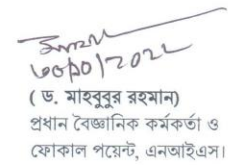 ( ড. মাহবুবুর রহমান)
প্রধান বৈজ্ঞানিক কর্মকর্তা ও
ফোকাল পয়েন্ট, এনআইএস।